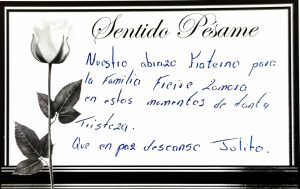 Sentido Pésame
Nuestro abrazo Fraterno para
la Familia Freire Zamora
en estos momentos de tanta
Tristeza.
Que en paz descanse Julito.